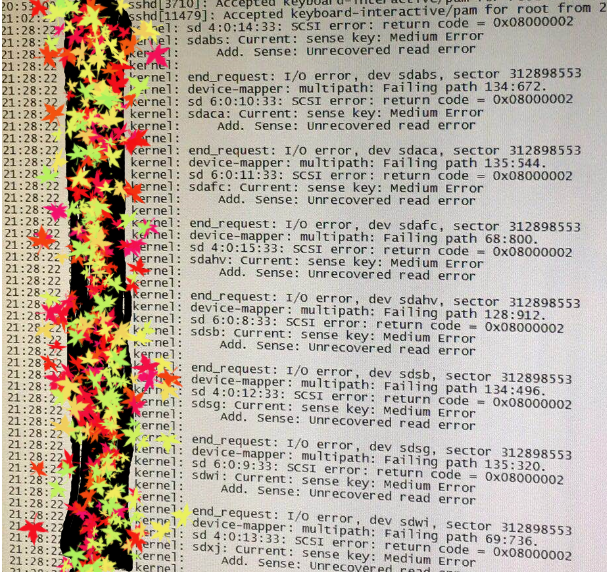 20:53:0 sshd[3710]: Accepted keyboard-interactive/pam for root
21:02: sshd[11479]: Accepted keyboard-interactive/pam for root from 2
21:28:22 kernel: sd 4:0:14:33: SCSI error: return code = 0x08000002
21:28:22 kernel: sdabs: Current: sense key: Medium Error
21:28:22 kernel: Add. Sense: Unrecovered read error
21:28:22 kernel:
21:28:22 kernel: end_request: I/O error, dev sdabs, sector 312898553
21:28:22 kernel: device-mapper: multipath: Failing path 134:672.
21:28:22 kernel: sd 6:0:10:33: SCSI error: return code = 0x08000002
21:28:22 kernel: sdaca: Current: sense key: Medium Error
21:28:22 kernel: Add. Sense: Unrecovered read error
21:28:22 kernel:
21:28:22 kernel: end_request: I/O error, dev sdaca, sector 312898553
21:28:22 kernel: device-mapper: multipath: Failing path 135:544.
21:28:22 kernel: sd 6:0:11:33: SCSI error: return code = 0x08000002
21:28:22 kernel: sdafc: Current: sense key: Medium Error
21:28:22 kernel: Add. Sense: Unrecovered read error
21:28:22 kernel:
21:28:22 kernel: end_request: I/O error, dev sdafc, sector 312898553
21:28:22 kernel: device-mapper: multipath: Failing path 68:800.
21:28:22 kernel: sd 4:0:15:33: SCSI error: return code = 0x08000002
21:28:22 kernel: sdahv: Current: sense key: Medium Error
21:28:22 kernel: Add. Sense: Unrecovered read error
21:28:22 kernel:
21:28:22 kernel: end_request: I/O error, dev sdahv, sector 312898553
21:28:22 kernel: device-mapper: multipath: Failing path 128:912.
21:28:22 kernel: sd 6:0:8:33: SCSI error: return code = 0x08000002
21:28:22 kernel: sdsb: Current: sense key: Medium Error
21:28:22 kernel: Add. Sense: Unrecovered read error
21:28:22 kernel:
21:28:22 kernel: end_request: I/O error, dev sdsb, sector 312898553
21:28:22 kernel: device-mapper: multipath: Failing path 134:496.
21:28:22 kernel: sd 4:0:12:33: SCSI error: return code = 0x08000002
21:28:22 kernel: sdsg: Current: sense key: Medium Error
21:28:22 kernel: Add. Sense: Unrecovered read error
21:28:22 kernel:
21:28:22 kernel: end_request: I/O error, dev sdsg, sector 312898553
21:28:22 kernel: device-mapper: multipath: Failing path 135:320.
21:28:22 kernel: sd 6:0:9:33: SCSI error: return code = 0x08000002
21:28:22 kernel: sdwi: Current: sense key: Medium Error
21:28:22 kernel: Add. Sense: Unrecovered read error
21:28:22 kernel:
21:28:22 kernel: end_request: I/O error, dev sdwi, sector 312898553
21:28:22 kernel: device-mapper: multipath: Failing path 69:736.
21:28:22 kernel: sd 4:0:13:33: SCSI error: return code = 0x08000002
21:28:22 kernel: sdxj: Current: sense key: Medium Error
21:28:22 kernel: Add. Sense: Unrecovered read error